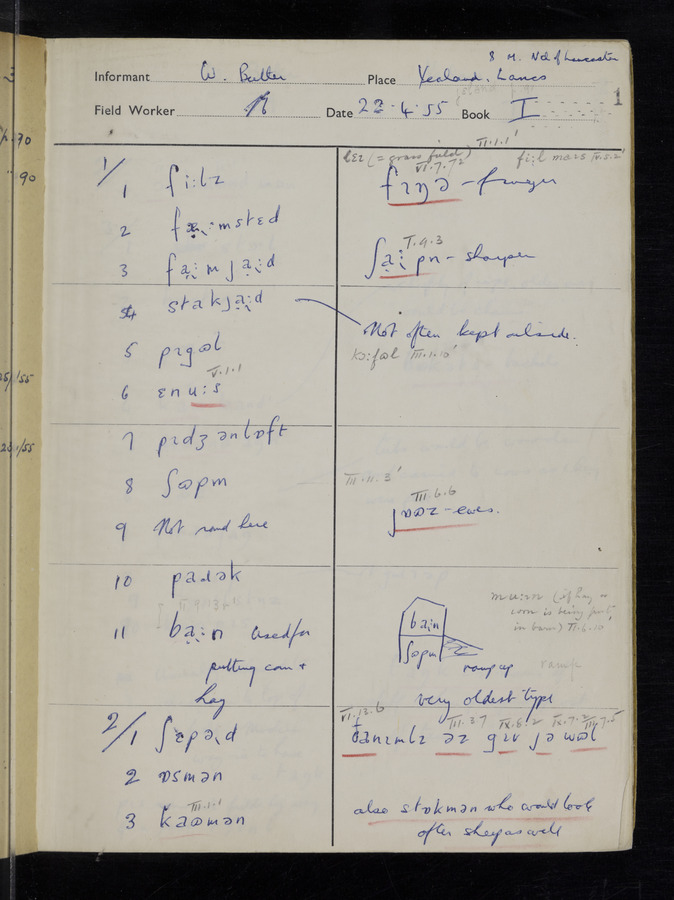 8 M. N of Lancaster
Informant W. Butler Place Yealand, Lancs
Field Worker Date 22·4·55 Book I
1
II.1.1'
lɛɪ (= grass field) fi:l
VI.7.7
1/1 fi:lz
fɪŋə - finger
2 fa:mstɛd
3 fa:mja:d
I.9.3
ʃa:pn - sharpen
4 stakja:d
Not often kept outside.
5 pɪgəl
kɔ:fəl III.1.10'
V.1.1
6 ɛnu:s
7 pɪdʒənlɒft
8 ʃɒpm
III.11.3'
9 Not round here
III.6.6
jɒəz - ewes.
10 padək
11 ba:n used for
putting corn +
hay
mu:ɪn (if hay or
corn is being put
in barn) II.6.10'
ba:n
ʃɒpm
ramp up
ramp
very oldest type
2/1 ʃɛpəd
VI.13.6 III.3.7 IX.8.2 IX.7.2 III.7.5
ðanɪmlz əz gɪv jə wəl
2 ɒsmən
III.1.1
3 kaəmən
also stɒkmən who would look
after sheep as well
90
90